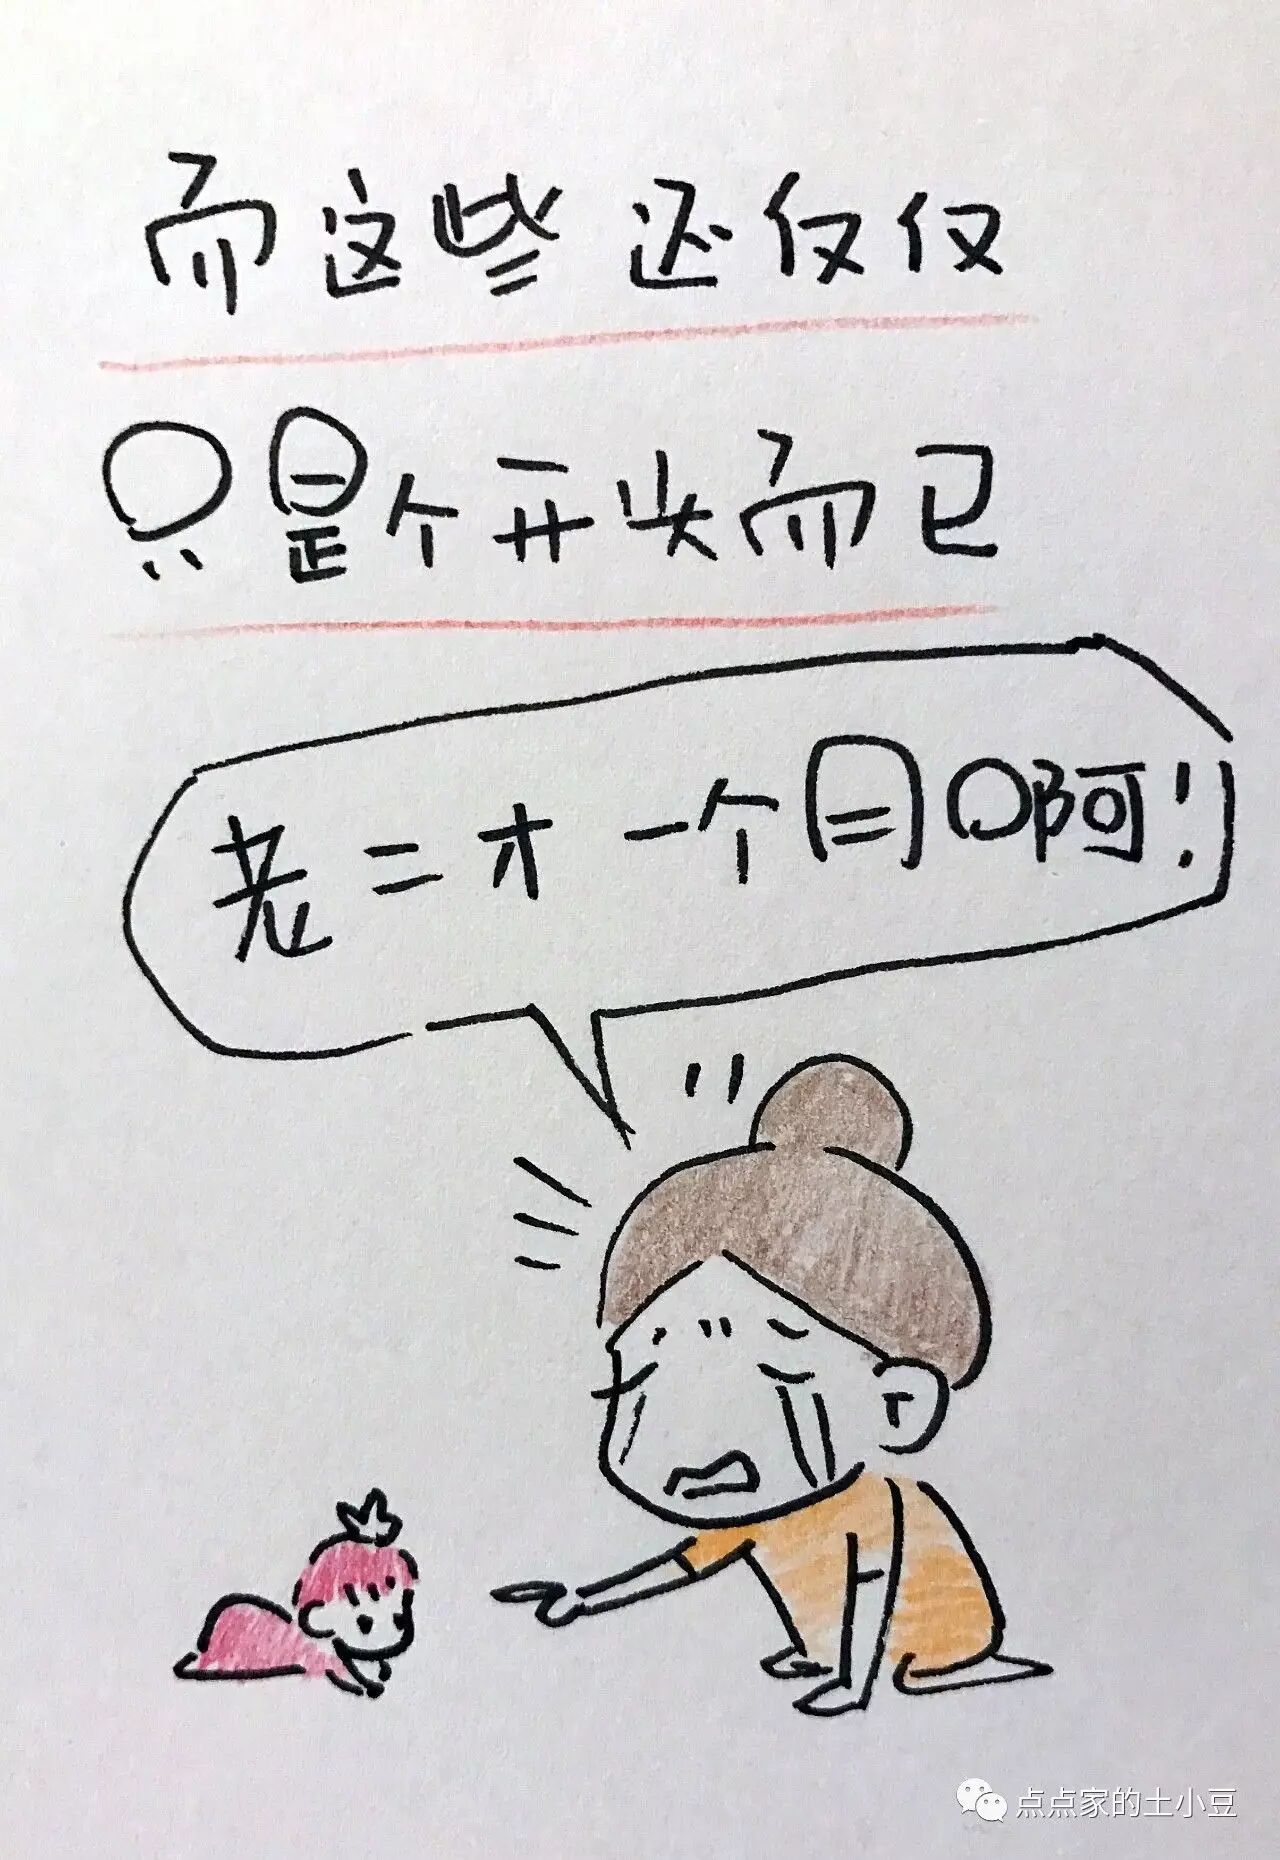 而这些还仅仅
只是个开头而已
老二才一个月啊!
点点家的土小豆